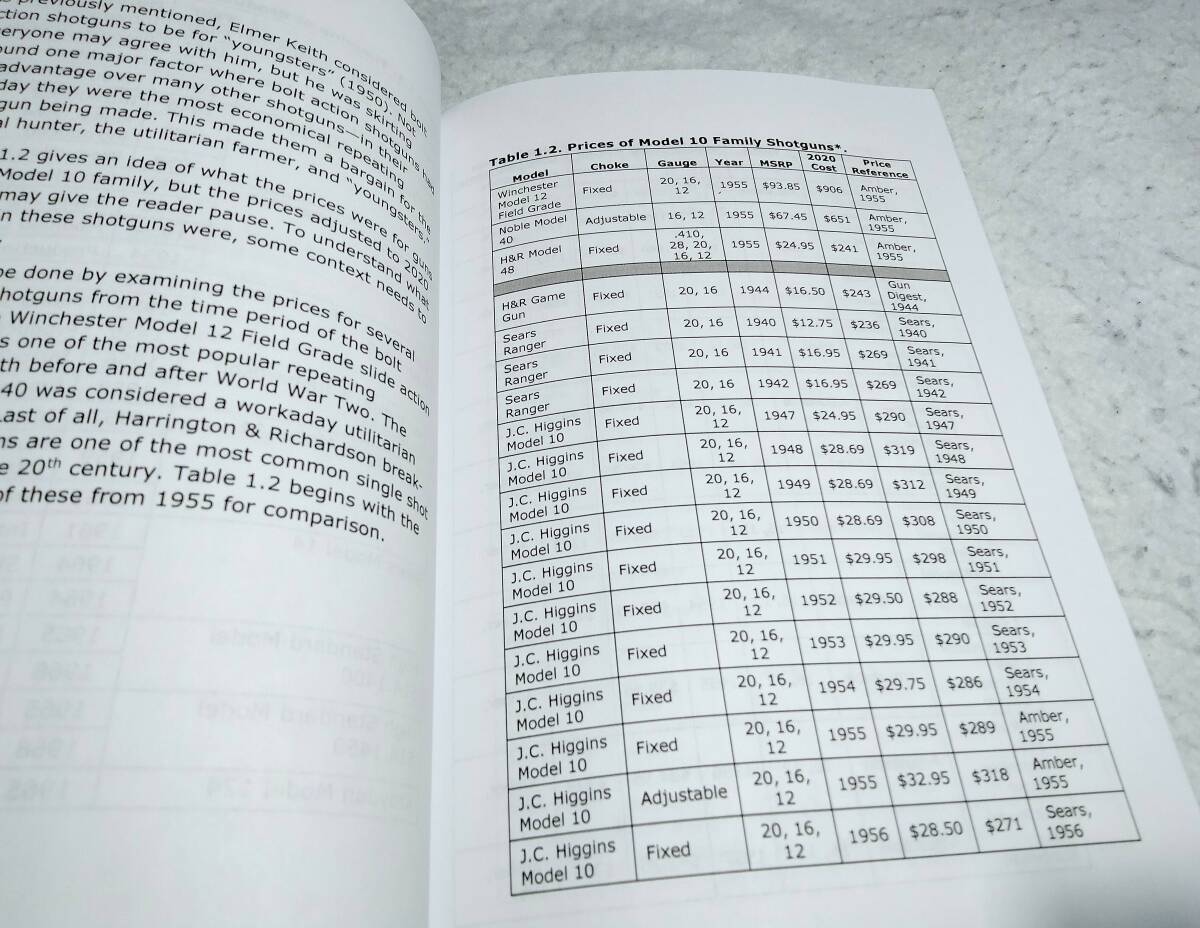 previously mentioned, Elmer Keith considered bolt
ction shotguns to be for "youngsters" (1950). Not
eryone may agree with him, but he was skirting
ound one major factor where bolt action shotguns had
advantage over many other shotguns—in their
day they were the most economical repeating
gun being made. This made them a bargain for the
al hunter, the utilitarian farmer, and "youngsters."
1.2 gives an idea of what the prices were for guns
Model 10 family, but the prices adjusted to 2020
may give the reader pause. To understand what
n these shotguns were, some context needs to
be done by examining the prices for several
hotguns from the time period of the bolt
Winchester Model 12 Field Grade slide action
s one of the most popular repeating
th before and after World War Two. The
40 was considered a workaday utilitarian
Last of all, Harrington & Richardson break-
ns are one of the most common single shot
e 20th century. Table 1.2 begins with the
of these from 1955 for comparison.
Table 1.2. Prices of Model 10 Family Shotguns*.
Model Choke Gauge Year MSRP 2020 Cost Price Reference
Winchester Model 12 Field Grade Fixed 20, 16, 12 1955 $93.85 $906 Amber, 1955
Noble Model 40 Adjustable 16, 12 1955 $67.45 $651 Amber, 1955
H&R Model 48 Fixed .410, 28, 20, 16, 12 1955 $24.95 $241 Amber, 1955
H&R Game Gun Fixed 20, 16 1944 $16.50 $243 Gun Digest, 1944
Sears Ranger Fixed 20, 16 1940 $12.75 $236 Sears, 1940
Sears Ranger Fixed 20, 16 1941 $16.95 $269 Sears, 1941
Sears Ranger Fixed 20, 16 1942 $16.95 $269 Sears, 1942
J.C. Higgins Model 10 Fixed 20, 16, 12 1947 $24.95 $290 Sears, 1947
J.C. Higgins Model 10 Fixed 20, 16, 12 1948 $28.69 $319 Sears, 1948
J.C. Higgins Model 10 Fixed 20, 16, 12 1949 $28.69 $312 Sears, 1949
J.C. Higgins Model 10 Fixed 20, 16, 12 1950 $28.69 $308 Sears, 1950
J.C. Higgins Model 10 Fixed 20, 16, 12 1951 $29.95 $298 Sears, 1951
J.C. Higgins Model 10 Fixed 20, 16, 12 1952 $29.50 $288 Sears, 1952
J.C. Higgins Model 10 Fixed 20, 16, 12 1953 $29.95 $290 Sears, 1953
J.C. Higgins Model 10 Fixed 20, 16, 12 1954 $29.75 $286 Sears, 1954
J.C. Higgins Model 10 Fixed 20, 16, 12 1955 $29.95 $289 Amber, 1955
J.C. Higgins Model 10 Adjustable 20, 16, 12 1955 $32.95 $318 Amber, 1955
J.C. Higgins Model 10 Fixed 20, 16, 12 1956 $28.50 $271 Sears, 1956